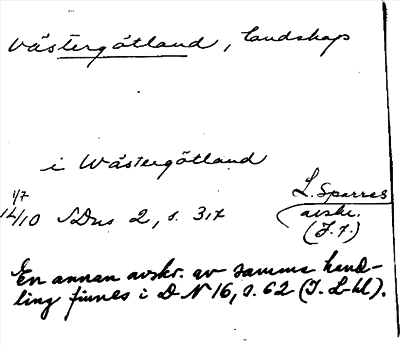 Västergötland, landskap
i Wästergötland
1/7
14/10 SDns 2, s. 317
L. Sparres
avskr.
(J. f.)
En annan avskr. av samma hand-
ling finnes i D N 16, s. 62 (J. L-hl).